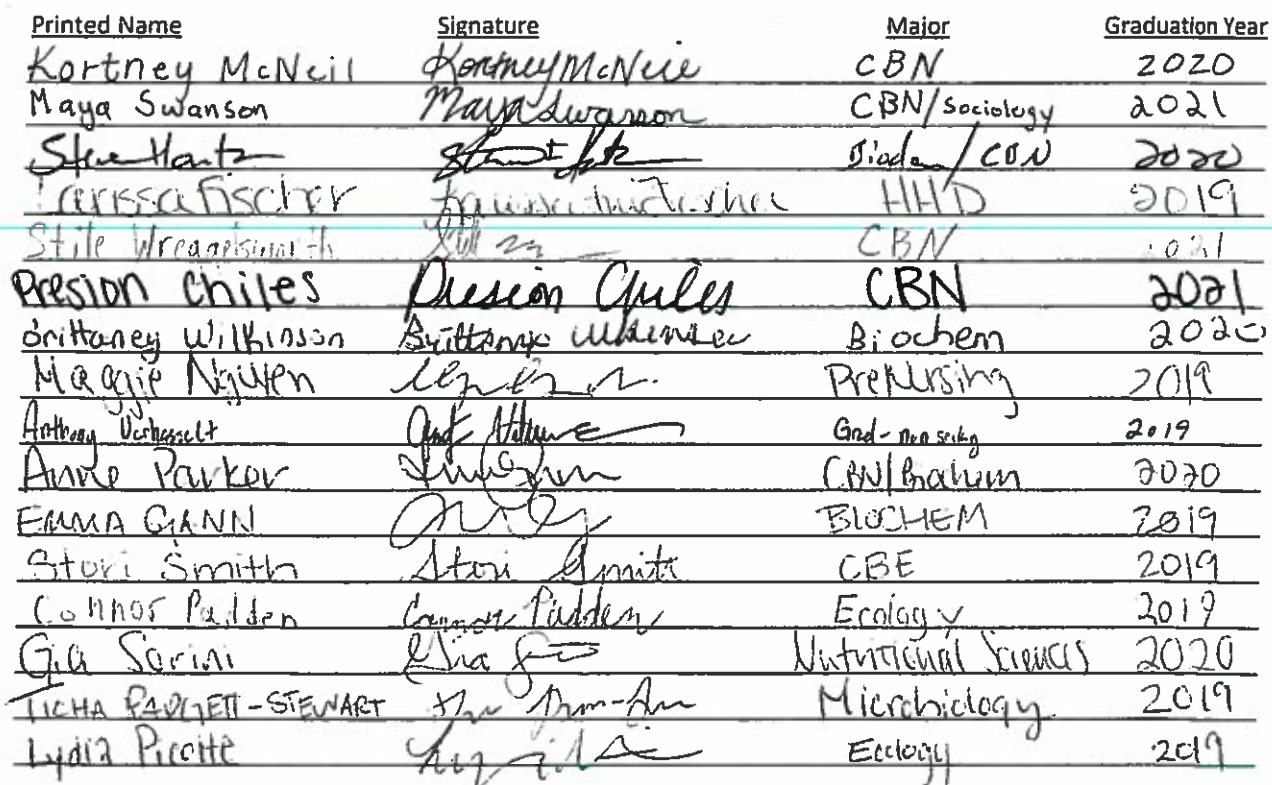 Printed Name Signature Major Graduation Year
Kortney McNeil Kortney McNeil CBN 2020
Maya Swanson Maya Swanson CBN/Sociology 2021
Steve Hantz CBN 2020
Larissa Fischer HHD 2019
Stile CBN 2021
Presion Chiles Presion Chiles CBN 2021
Brittaney Wilkinson Brittaney Biochem 2020
Maggie Nguyen PreNursing 2019
Anthony Verhasselt Grad-non seeking 2019
Anne Parker CBN/ 2020
EMMA GANN BIOCHEM 2019
Stori Smith Stori Smith CBE 2019
Connor Padden Connor Padden Ecology 2019
Gia Sorini Gia Nutritional Sciences 2020
TICHA PADGETT-STEWART Microbiology 2019
Lydia Picotte Ecology 2019